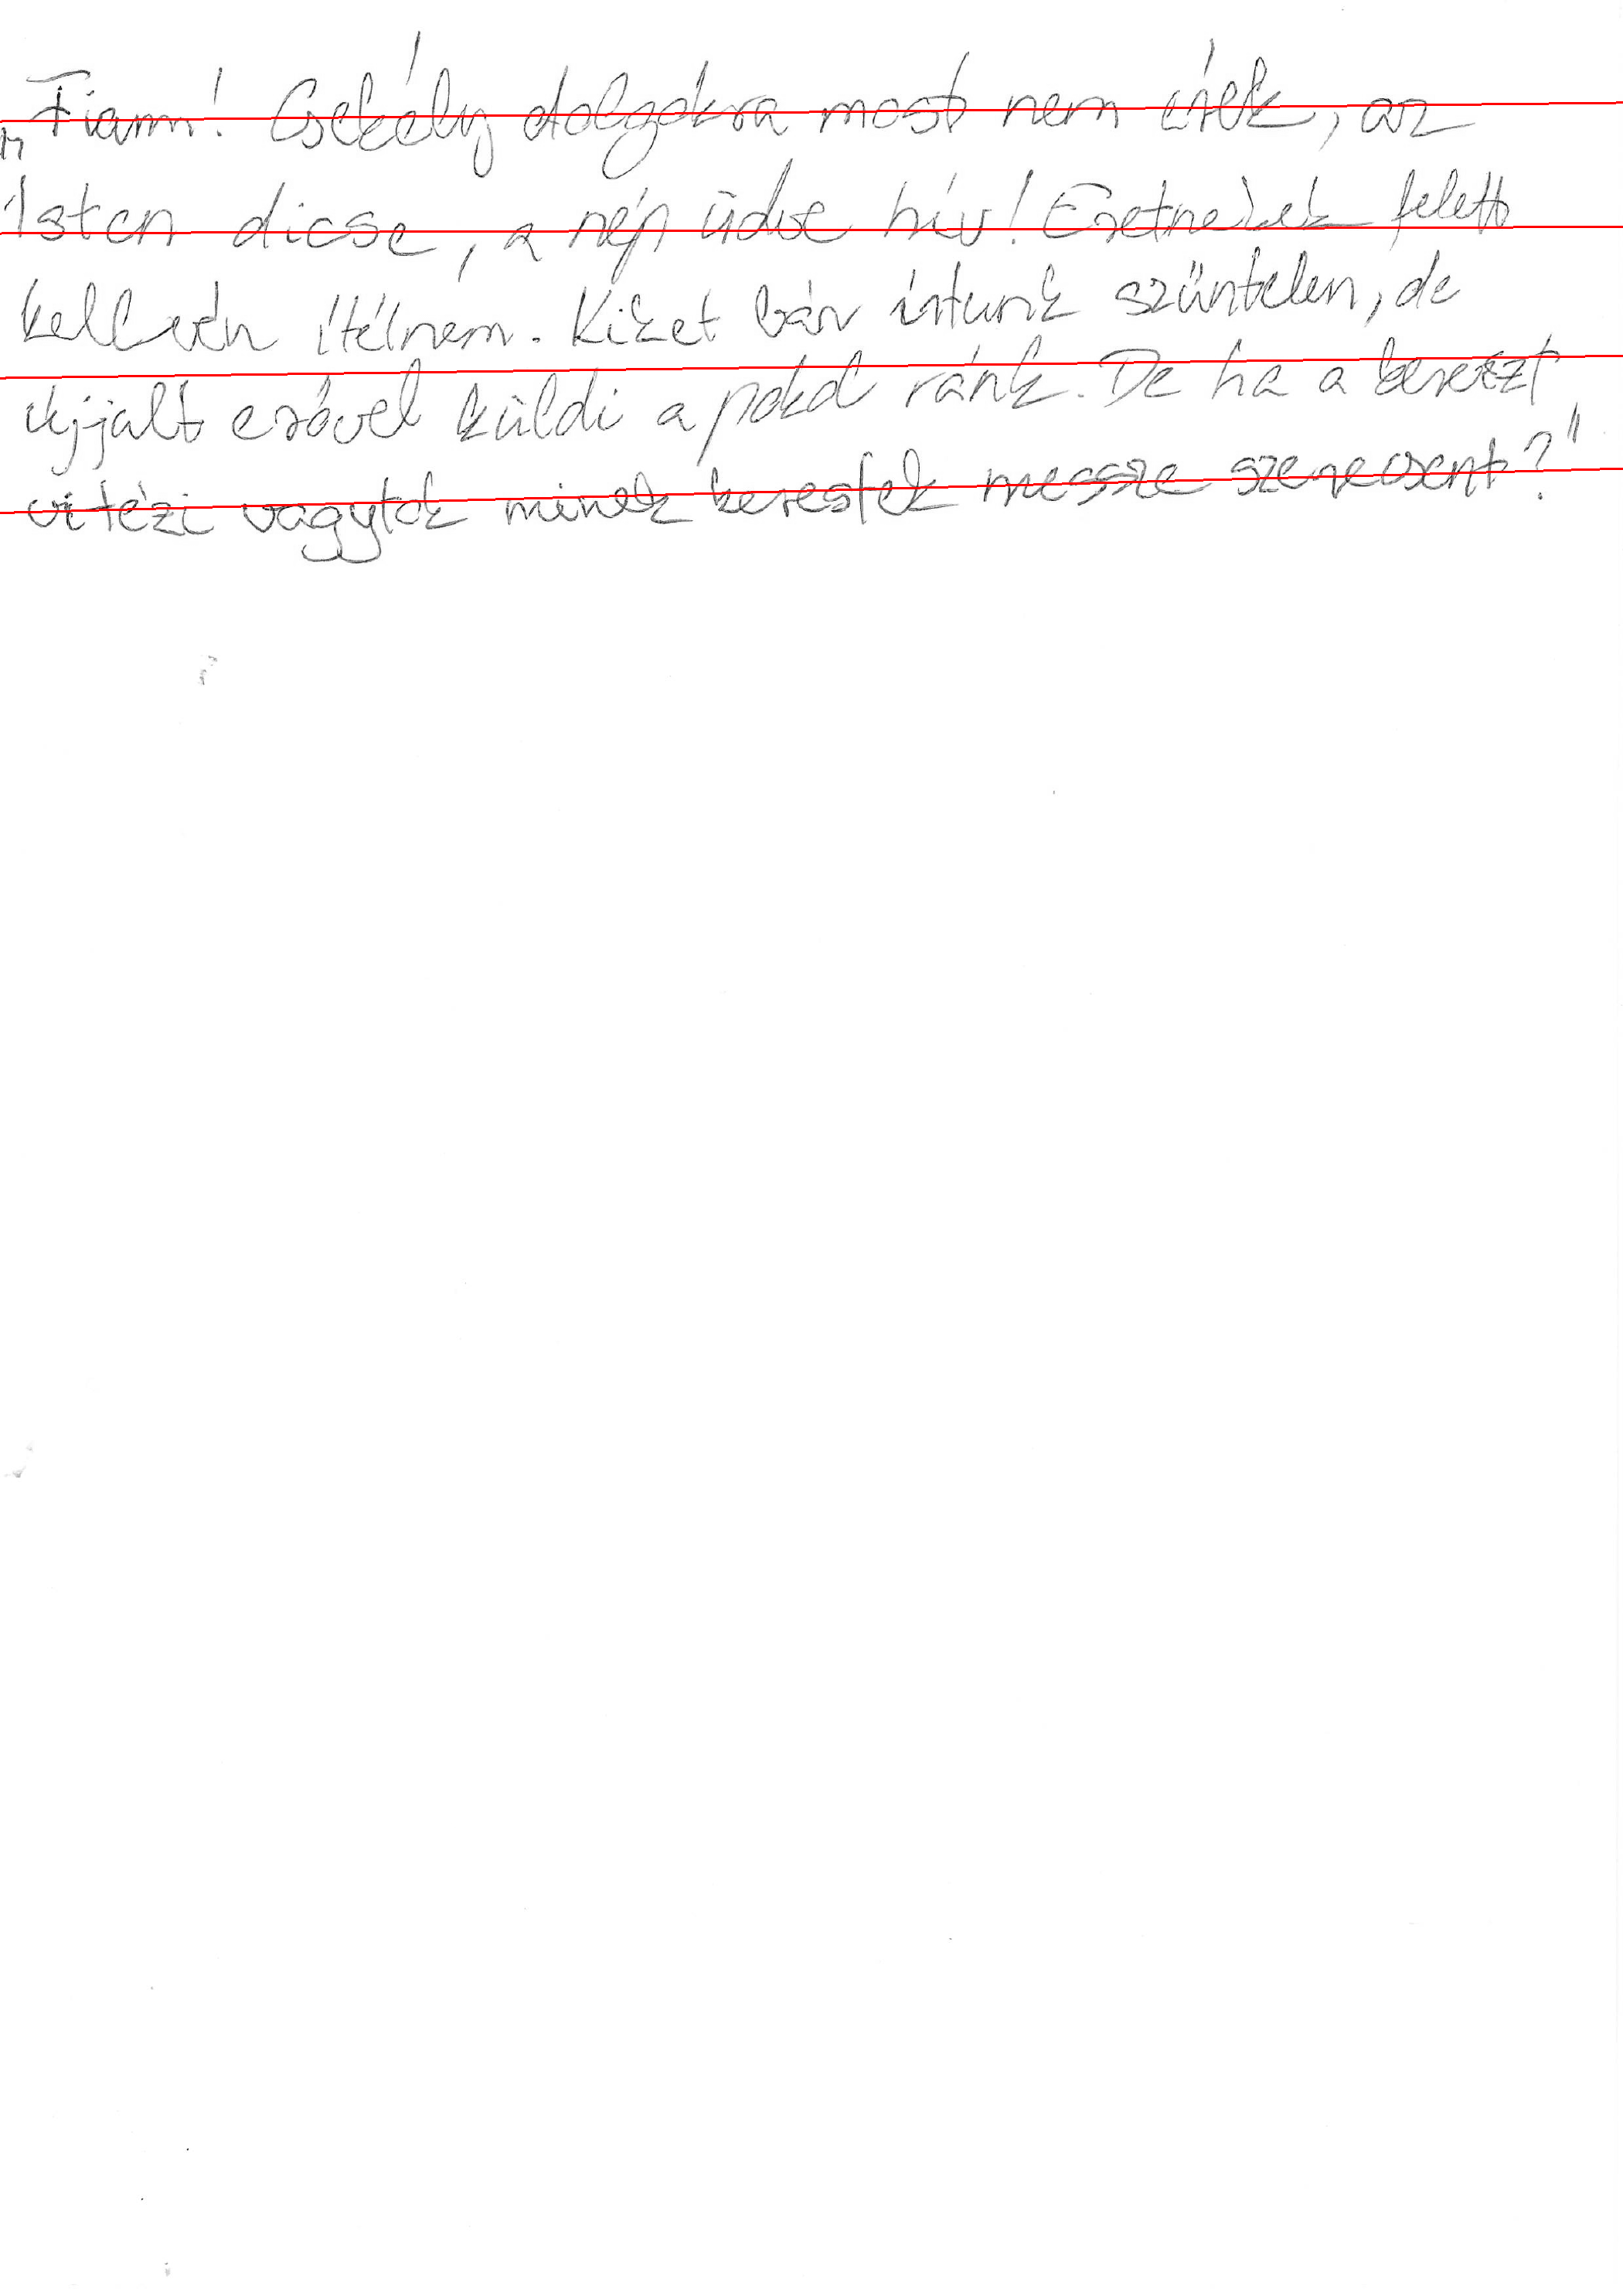 „Fiam! Csekély dolgokra most nem érek, az
Isten dicse, a nép üdve hív! Eretnekek felett
kellvén ítélnem. Kiket bár írtunk szüntelen, de
újjált erővel küldi a pokol ránk. De ha a kereszt
vitézi vagytok minek kerestek messze szerecsent?"